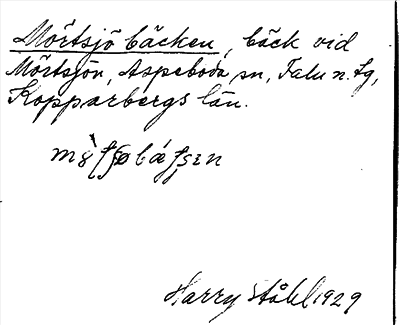 Mörtsjö bäcken, bäck vid
Mörtsjön, Aspeboda sn, Falu n. tg,
Kopparbergs län.
Harry Ståhl 1929